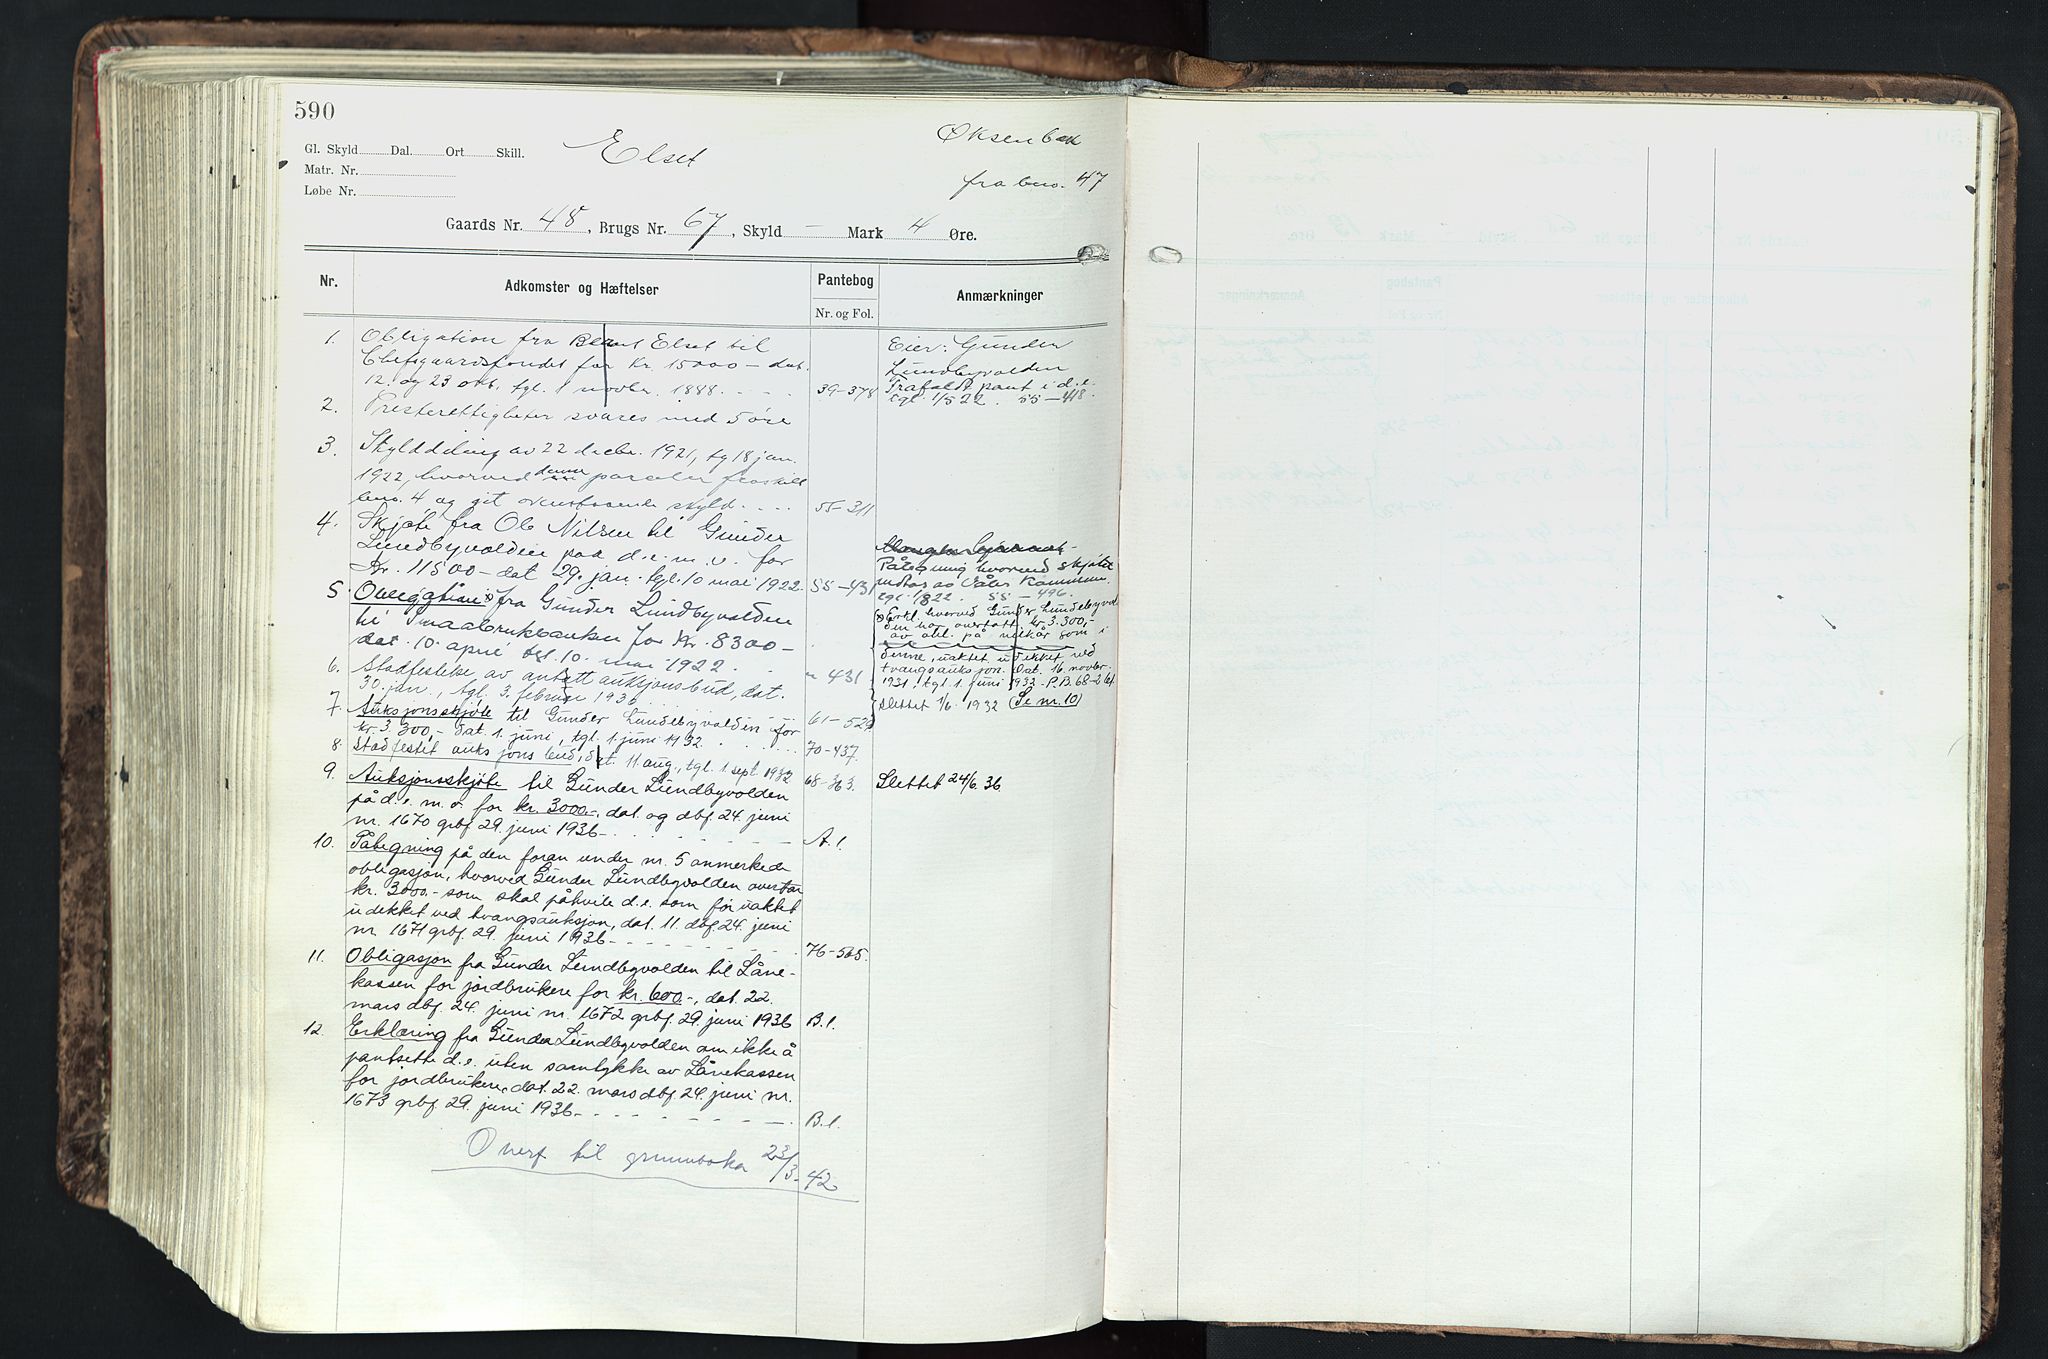 590
Gl. Skyld Dal. Ort Skill. Elset Øksenbæk
Matr. Nr.
Løbe Nr. fra bno. 47
Gaards Nr. 48, Brugs Nr. 67, Skyld – Mark 4 Øre.
Nr. Adkomster og Hæftelser Pantebog Anmærkninger
Nr. og Fol.
1. Obligation fra Elset til
for kr. 15000 – dat.
12. og 23 okt. tgl. 1 novbr. 1888. 39–378
2. Presterettigheter svares med 5 øre
3. Skylddeling av 22 decbr. 1921, tg 18 jan.
1922, hvorved denne parceler fraskilt
bno. 4 og git ovenstaaende skyld. 55–311
4. Skjøte fra Ole Nilsen til Gunder
Lundbyvolden paa d.e.m.v. for
Kr. 11500 – dat 29. jan. tgl. 10 mai 1922. 55–431
5. Obligation fra Gunder Lundbyvolden
til Smaabrukbanken for kr. 8300 –
dat. 10. april tgl. 10. mai 1922. " 431
6. Stadfestelse av antatt auksjonsbud, dat.
30. jan., tgl. 3. februar 1936
7. Auksjonsskjöte til Gunder Lundebyvolden for 61–529
kr. 3.300,- dat. 1. juni, tgl. 1. juni 1932.
8. Stadfestet auksjonsbud, dat. 11. aug., tgl. 1. sept. 1932 70–437.
9. Auksjonsskjöte til Gunder Lundbyvolden 68–363.
på d.e.m.v. for kr. 3000.-, dat. og dbf. 24. juni
nr. 1670 grbf 29. juni 1936 –
10. Påtegning på den foran under nr. 5 anmerkede A.1.
obligasjon, hvorved Gunder Lundbyvolden overtar
kr. 3000.- som skal påhvile d.e. som för uaktet
udekket ved tvangsauksjon, dat. 11. dbf. 24. juni
nr. 1671 grbf. 29. juni 1936 –
11. Obligasjon fra Gunder Lundbyvolden til Låne- 76–505.
kassen for jordbrukere for kr. 600.-, dat. 22.
mars dbf. 24. juni nr. 1672 grbf. 29. juni 1936 B.1.
12. Erklæring fra Gunder Lundbyvolden om ikke å
pantsette d.e. uten samtykke av Lånekassen
for jordbrukere, dat. 22. mars dbf. 24. juni nr.
1673 grbf. 29. juni 1936 – B.1.
Overf til grunnboka 23/3–42
Eier: Gunder
Lundbyvolden
Frafaldt pant i d.e.
tgl. 1/5 22. 55–418.
Påtegning hvorved skjötet
av Våler Kommune.
tgl. 1/8 22. 55–496.
Erkl. hvorved Gunder Lundebyvol-
den har overtatt kr. 3.300,-
av obl. på vilkår som i
denne, uaktet udekket ved
tvangsauksjon. Dat. 16. novbr.
1931, tgl. 1. juni 1932 – P.B. 68–261
slettet 1/6. 1932 (Se nr. 10)
Slettet 24/6. 36